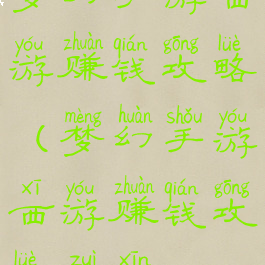 梦幻手游西
yóu zhuàn qián gōng lüè
游赚钱攻略
mèng huàn shǒu yóu
（梦幻手游
xī yóu zhuàn qián gōng
西游赚钱攻
lüè zuì xīn